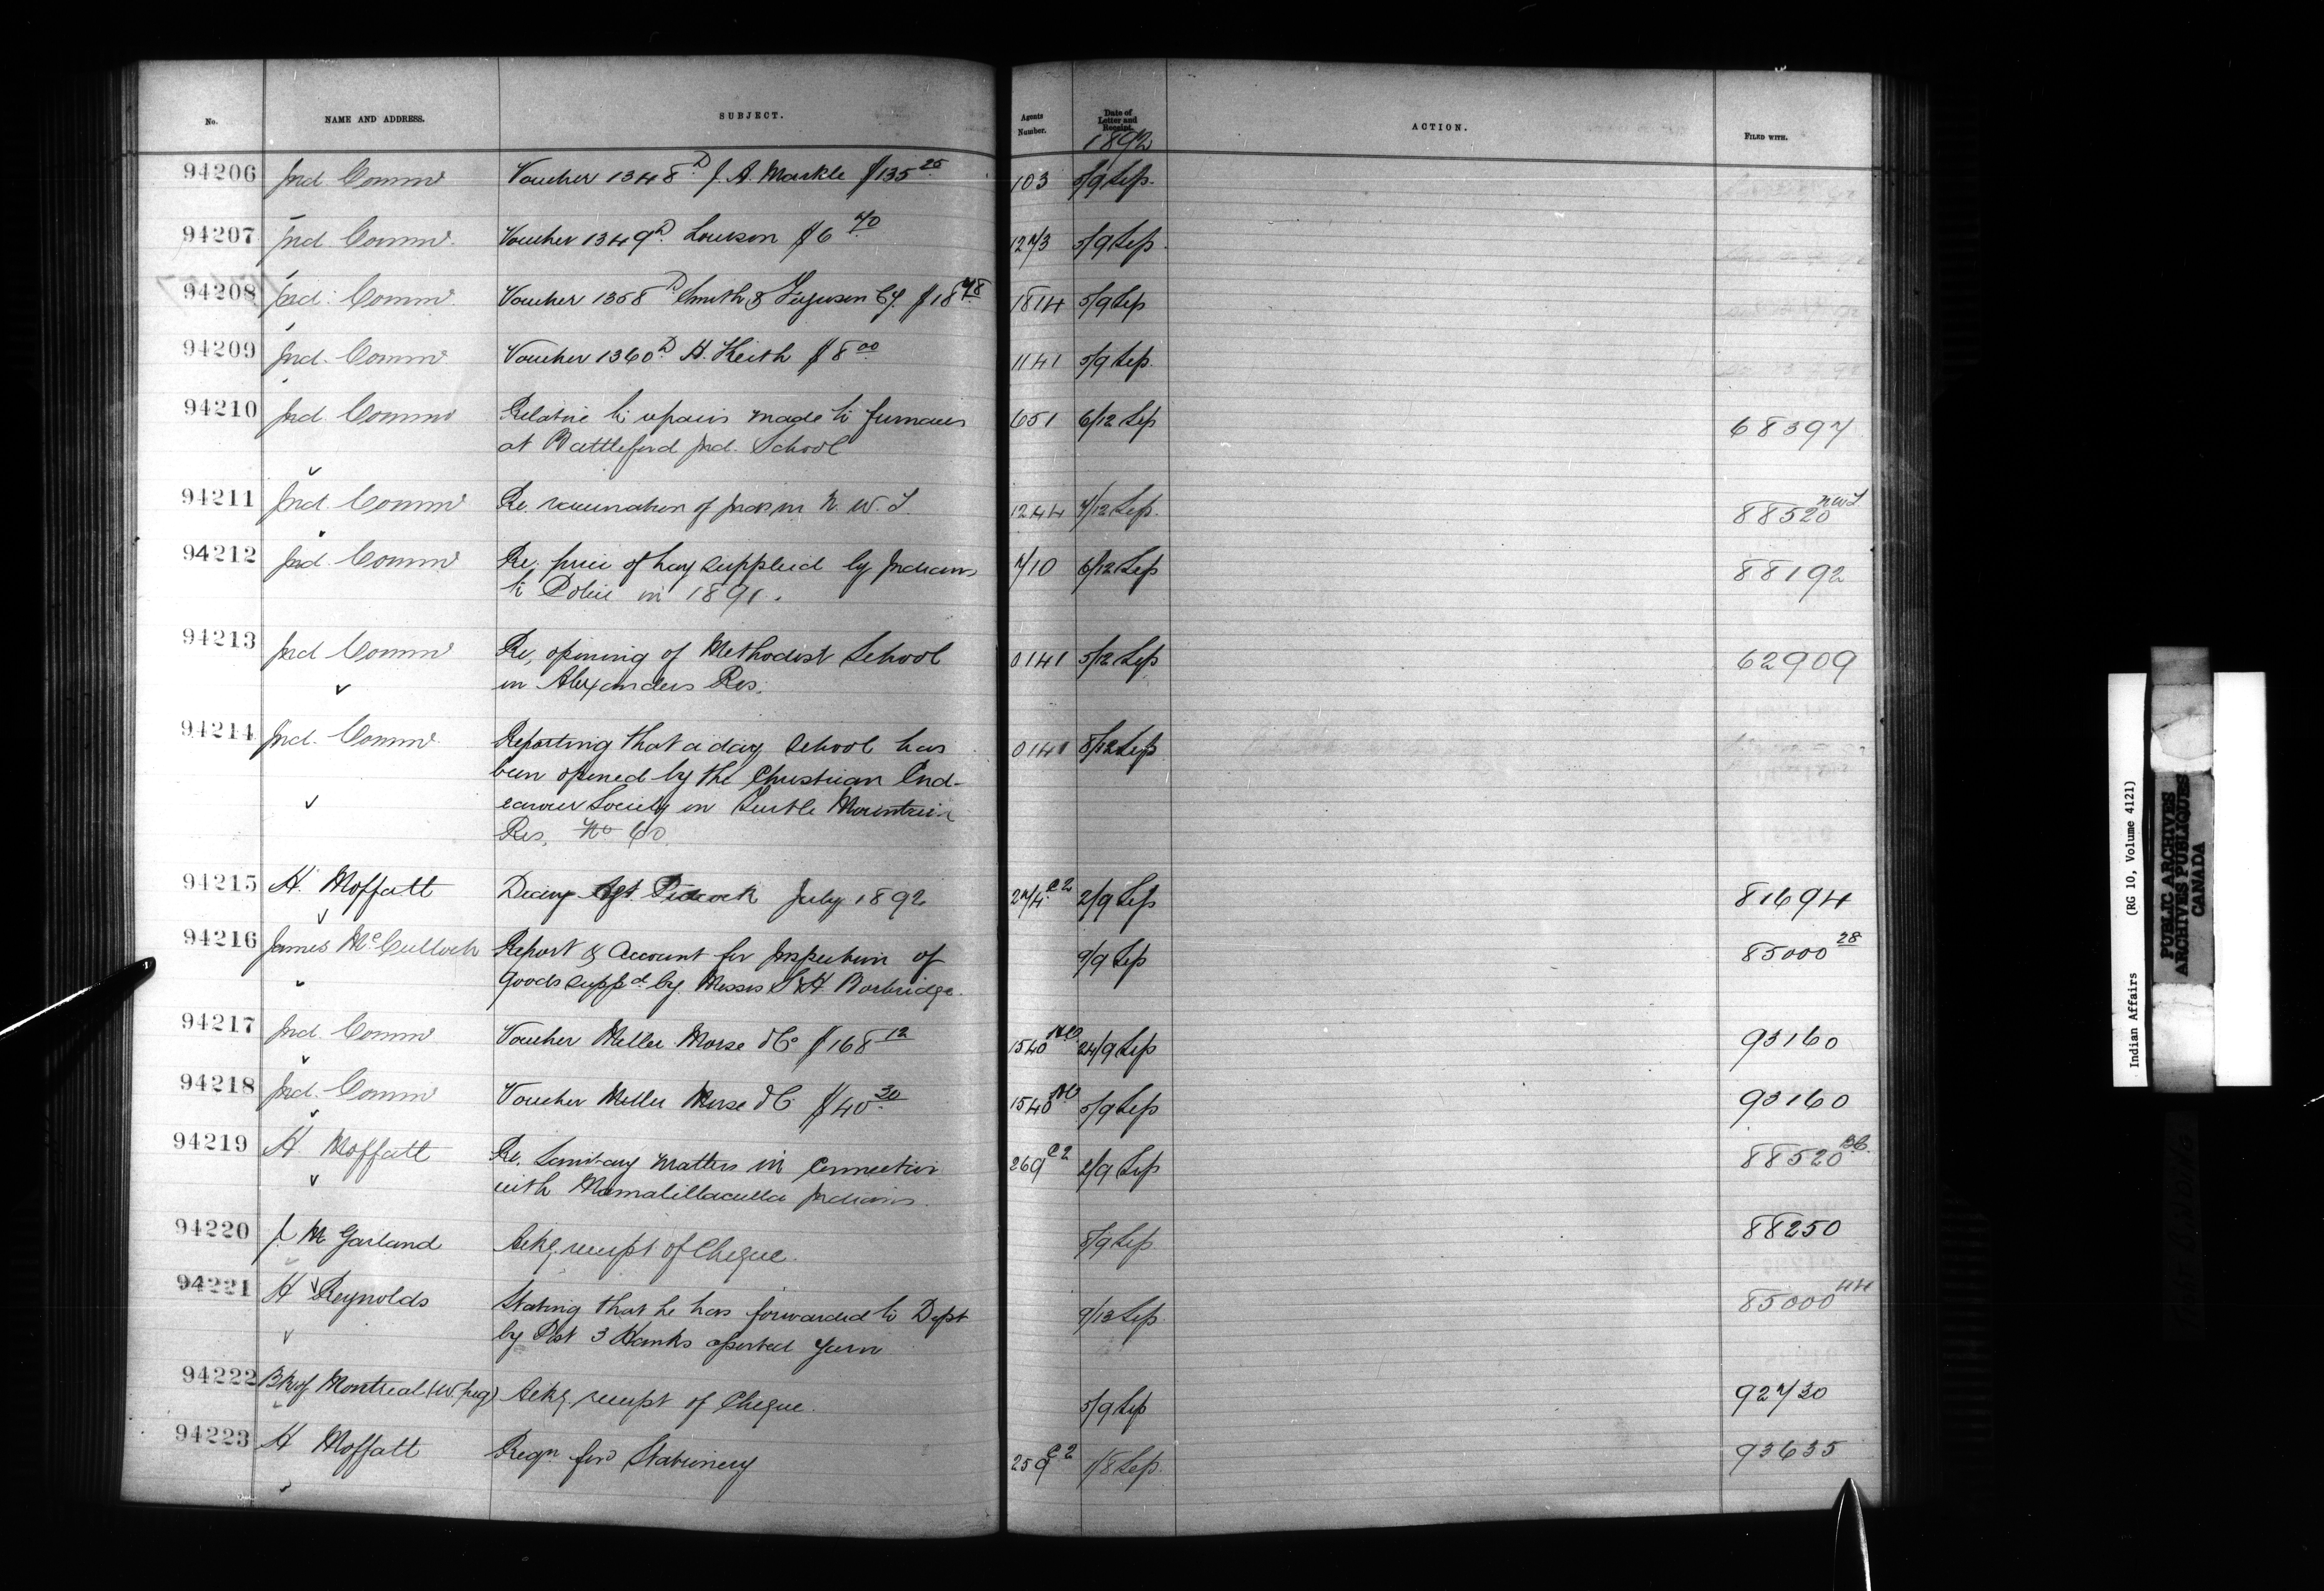 No. NAME AND ADDRESS. SUBJECT. Agents Number. Date of Letter and Receipt. ACTION. FILED WITH.
1892
94206 Ind. Commr Voucher 1348 D J. A. Markle $135 25 103 5/9 Sep.
94207 Ind. Commr. Voucher 1349 D. $6 70 1273 5/9 Sep.
94208 Ind. Commr. Voucher 1358 D Smith & Ferguson Cy. $18 78 1814 5/9 Sep
94209 Ind. Commr Voucher 1360 D H. Keith $8 00 1141 5/9 Sep.
94210 Ind. Commr Relative to repairs made to furnaces 651 6/12 Sep 68397
at Battleford Ind. School
94211 Ind. Commr Re. vaccination of Inds in N. W. T. 1244 7/12 Sep. 88520 NWT
94212 Ind. Commr Re. price of hay supplied by Indians 710 6/12 Sep 88192
to Police in 1891.
94213 Ind Commr Re, opening of Methodist School 0141 5/12 Sep 62909
on Alexanders Res.
94214 Ind. Commr Reporting that a day school has 0141 8/12 Sep
been opened by the Christian End-
eavour Society on Turtle Mountain
Res. No 60.
94215 H. Moffatt Diary Agt. Pidcock July 1892 274 C2 2/9 Sep 81694
94216 James McCulloch Report & Account for Inspection of 9/9 Sep 85000 28
goods suppd by Messrs S & H Borbridge.
94217 Ind Commr Voucher Miller Morse & Co $168 12 1540 24/9 Sep 93160
94218 Ind. Commr Voucher Miller Morse & C $40 30 1540 5/9 Sep 93160
94219 H Moffatt Re. Sanitary matters in Connection 269 C2 2/9 Sep 88520 BC.
with Mamalillaculla Indians.
94220 J. M Garland Ackg receipt of Cheque. 8/9 Sep 88250
94221 H Reynolds Stating that he has forwarded to Dept 9/13 Sep. 85000 44
by Post 3 Hanks assorted yarn
94222 Bk of Montreal (W.peg) Ackg. receipt of Cheque. 5/9 Sep 92730
94223 H Moffatt Reqn for Stationery 259 C2 1/8 Sep. 93635
Indian Affairs (RG 10, Volume 4121)
PUBLIC ARCHIVES
ARCHIVES PUBLIQUES
CANADA